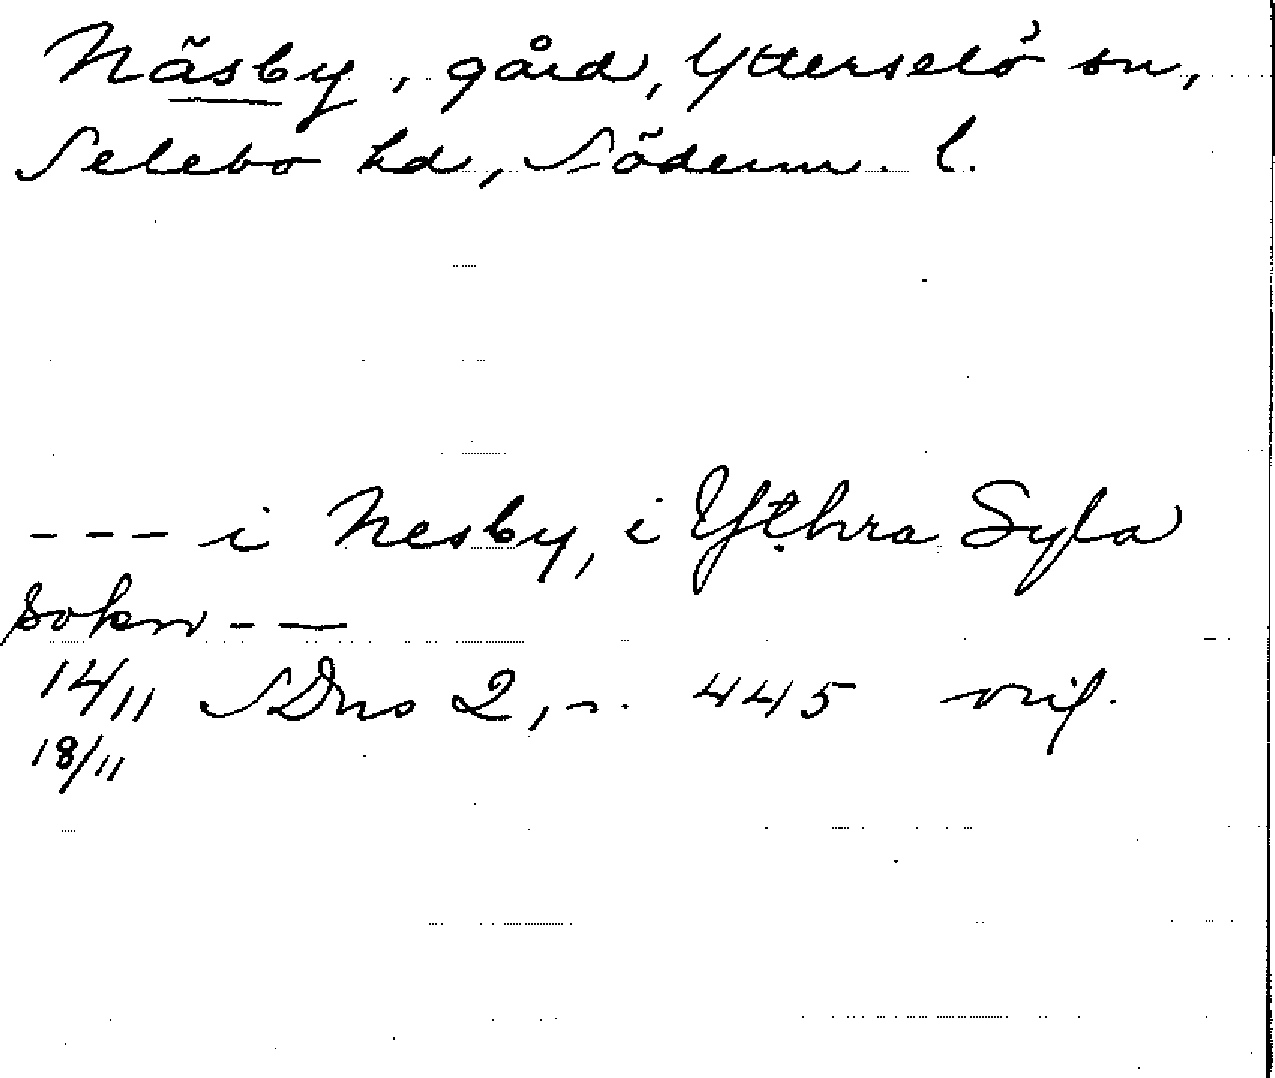 Näsby, gård, Ytterselö sn,
Selebo hd, Söderm. l.
--- i Nesby, i Ythra Syla
sokn --
14/11 SDns 2, s. 445 orig.
18/11